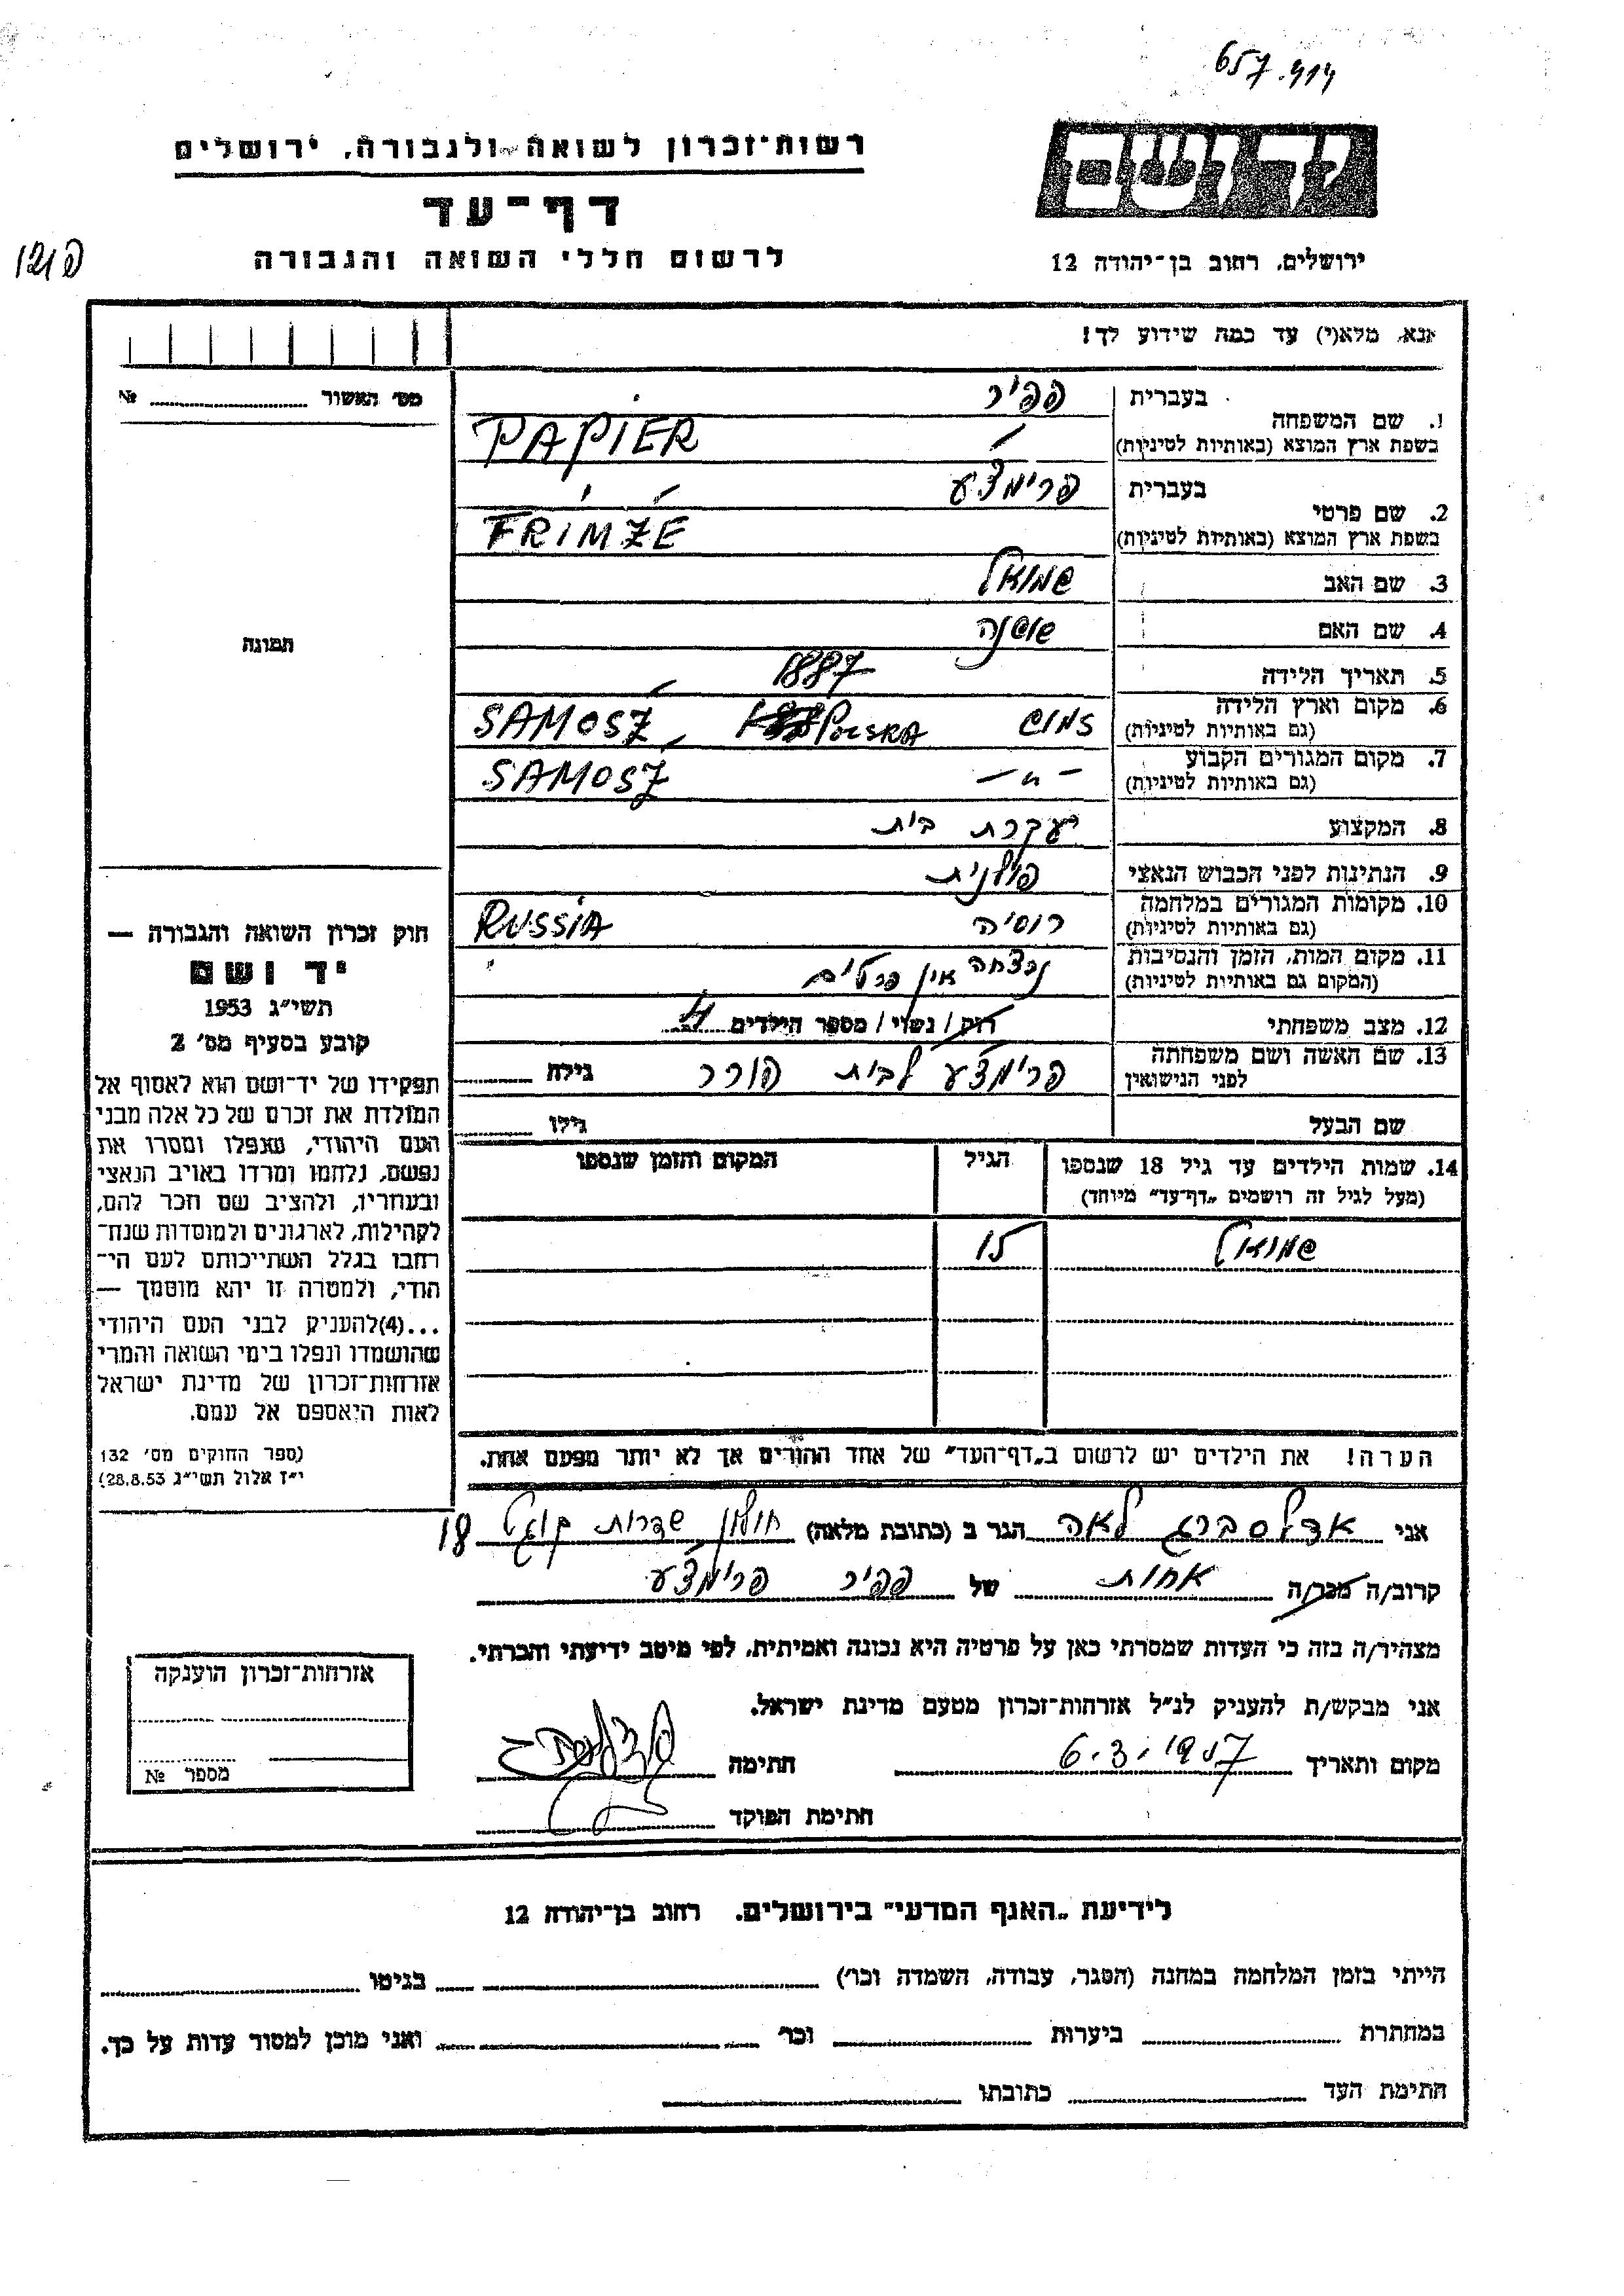 657.414
רשות־זכרון לשואה ולגבורה, ירושלים
דף־עד
לרשום חללי השואה והגבורה
ירושלים, רחוב בן־יהודה 12
אנא, מלא(י) עד כמה שידוע לך!
מס׳ האשור №
בעברית פפיר
1. שם המשפחה
בשפת ארץ המוצא (באותיות לטיניות) PAPIER
בעברית פרימצע
2. שם פרטי
בשפת ארץ המוצא (באותיות לטיניות) FRIMZE
3. שם האב שמואל
4. שם האם שושנה
5. תאריך הלידה 1887
6. מקום וארץ הלידה זמוש POLSKA SAMOSZ
(גם באותיות לטיניות)
7. מקום המגורים הקבוע – " – SAMOSZ
(גם באותיות לטיניות)
8. המקצוע עקרת בית
9. הנתינות לפני הכבוש הנאצי פולנית
10. מקומות המגורים במלחמה רוסיה RUSSIA
(גם באותיות לטיניות)
11. מקום המות, הזמן והנסיבות נרצחה אין פרטים
(המקום גם באותיות לטיניות)
12. מצב משפחתי רוק / נשוי / מספר הילדים 4
13. שם האשה ושם משפחתה פרימצע לבית פורר גילה
לפני הנישואין
שם הבעל גילו
14. שמות הילדים עד גיל 18 שנספו הגיל המקום והזמן שנספו
(מעל לגיל זה רושמים „דף־עד״ מיוחד)
שמואל 15
הערה! את הילדים יש לרשום ב„דף־העד״ של אחד ההורים אך לא יותר מפעם אחת.
תמונה
חוק זכרון השואה והגבורה —
יד ושם
תשי״ג 1953
קובע בסעיף מס׳ 2
תפקידו של יד־ושם הוא לאסוף אל
המולדת את זכרם של כל אלה מבני
העם היהודי, שנפלו ומסרו את
נפשם, נלחמו ומרדו באויב הנאצי
ובעוזריו, ולהציב שם וזכר להם,
לקהילות, לארגונים ולמוסדות שנח־
רבו בגלל השתייכותם לעם הי־
הודי, ולמטרה זו יהא מוסמך —
...(4)להעניק לבני העם היהודי
שהושמדו ונפלו בימי השואה והמרי
אזרחות־זכרון של מדינת ישראל
לאות היאספם אל עמם.
(ספר החוקים מס׳ 132
י״ז אלול תשי״ג 28.8.53)
אני אדלסברג לאה הגר ב (כתובת מלאה) חולון שדרות קוגל 18
קרוב/ה מכר/ה אחות של פפיר פרימצע
מצהיר/ה בזה כי העדות שמסרתי כאן על פרטיה היא נכונה ואמיתית, לפי מיטב ידיעתי והכרתי.
אני מבקש/ת להעניק לנ״ל אזרחות־זכרון מטעם מדינת ישראל.
מקום ותאריך 6.3.1957 חתימה
חתימת הפוקד
אזרחות־זכרון הוענקה
מספר №
לידיעת „האגף המדעי״ בירושלים. רחוב בן־יהודה 12
הייתי בזמן המלחמה במחנה (הסגר, עבודה, השמדה וכו׳) בגיטו
במחתרת ביערות וכו׳ ואני מוכן למסור עדות על כך.
חתימת העד כתובתו